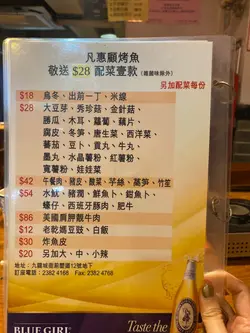 凡惠顧烤魚
敬送 $28 配菜壹款 (雜菌味除外)
另加配菜每份
$18 烏冬、出前一丁、米線
$28 大豆芽、秀珍菇、金針菇、
勝瓜、木耳、蘿蔔、藕片、
腐皮、冬筍、唐生菜、西洋菜、
蕃茄、豆卜、貢丸、牛丸、
墨丸、水晶薯粉、紅薯粉、
寬薯粉、娃娃菜
$42 午餐肉、豬皮、酸菜、芋絲、萵筍、竹笙
$54 水魷、豬潤、鮮魚卜、鎅魚卜、
蠔仔、西班牙豚肉、肥牛
$86 美國肩胛靚牛肉
$12 老乾媽豆豉、白飯
$30 炸魚皮
$20 另加大、中、小辣
地址：九龍城衙前圍道12號地下
訂座電話：2382 4168 Fax: 2382 4768
BLUE GIRL
Taste the